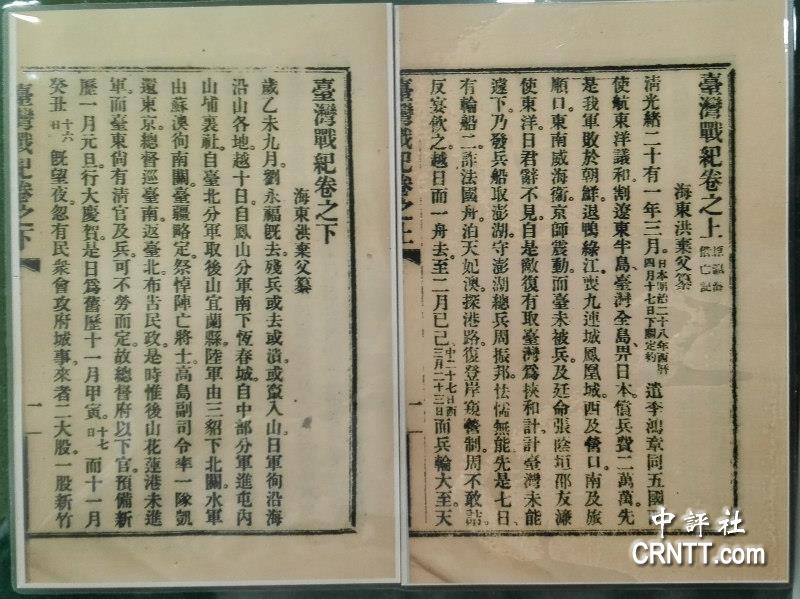 臺灣戰紀卷之上 原瀛海偕亡記
海東洪棄父纂
清光緒二十有一年三月。日本明治二十八年西曆四月十七日下關定約遣李鴻章同五國
使航東洋議和。割遼東半島、臺灣全島、畀日本。償兵費二萬萬。先
是我軍敗於朝鮮。退鴨綠江。喪九連城鳳凰城。西及營口。南及旅
順口。東南威海衛。京師震動。而臺未被兵。及廷命張陰垣邵友濂
使東洋。日君辭不見。自是敵復有取臺灣爲挾和計。計臺灣未能
遽下。乃發兵船取澎湖。守澎湖總兵周振邦怯懦無能。先是七日、
有輪船二。詐法國舟。泊天妃澳。探港路。復登岸窺營制。周不敢詰。
反宴飲之。越日而一舟去。至二月已己中二十七日西三月二十三日而兵輪大至。天
臺灣戰紀卷之上
一
臺灣戰紀卷之下
海東洪棄父纂
歲乙未九月。劉永福旣去。殘兵或去或潰或竄入山。日軍徇沿海
沿山各地。越十日。自鳳山分軍南下恆春城。自中部分軍進屯內
山埔裏社。自臺北分軍取後山宜蘭縣。陸軍由三貂下北關。水軍
由蘇澳徇南關。臺疆略定。祭悼陣亡將士。高島副司令率一隊凱
還東京。總督巡臺南。返臺北。布告民政。是時惟後山花蓮港未進
軍。而臺東尙有清官及兵。可不勞而定。故總督府以下官。預備新
歷一月元旦。行大慶賀。是日爲舊歷十一月甲寅。十七日而十一月
癸丑十六日旣望夜。忽有民衆會攻府城事。來者二大股。一股新竹
臺灣戰紀卷之下
一
中評社
CRNTT.com